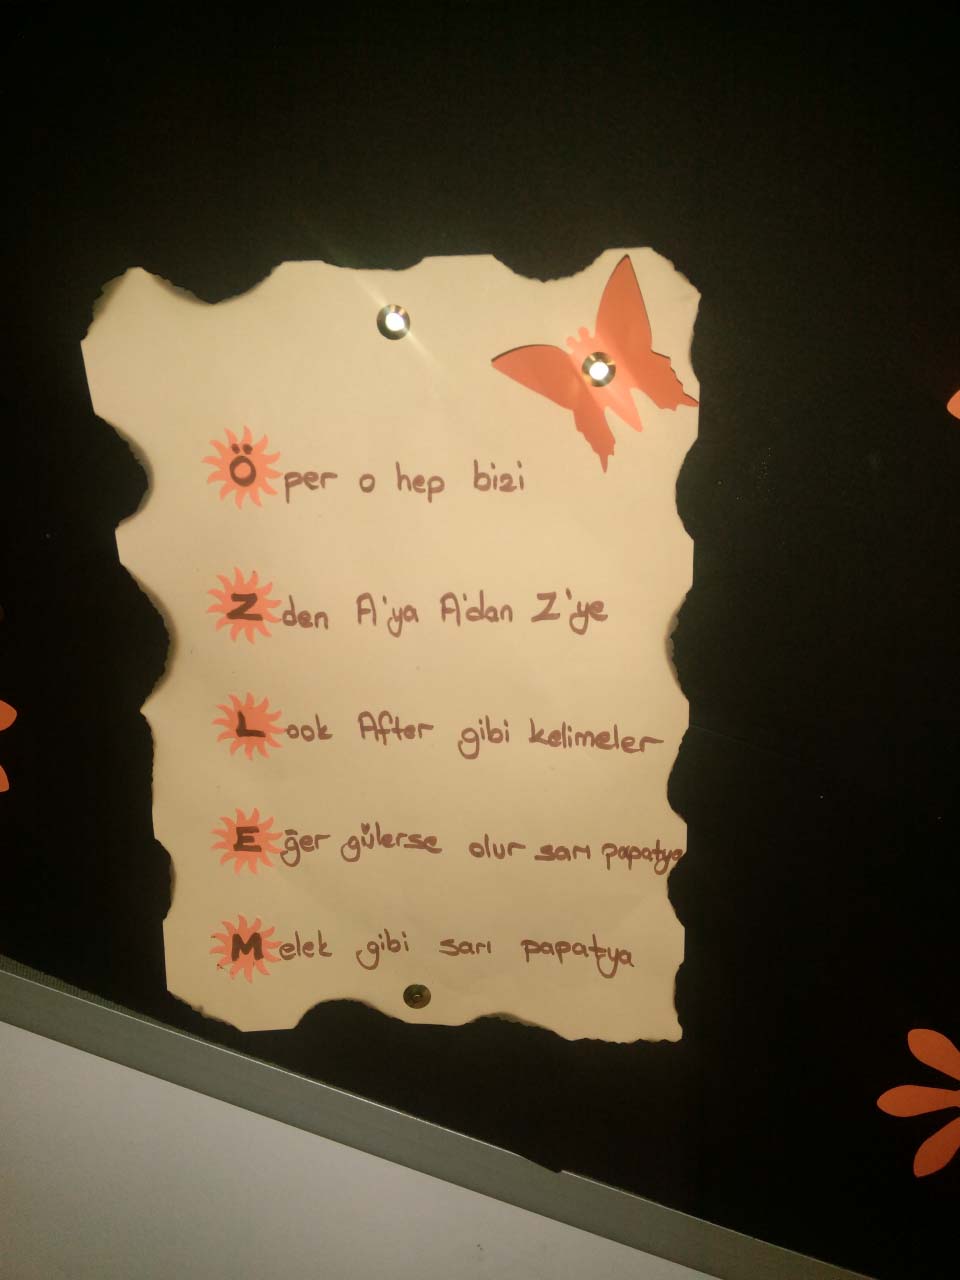 Öper o hep bizi
Zden A'ya A'dan Z'ye
Look After gibi kelimeler
Eğer gülerse olur sarı papatya
Melek gibi sarı papatya